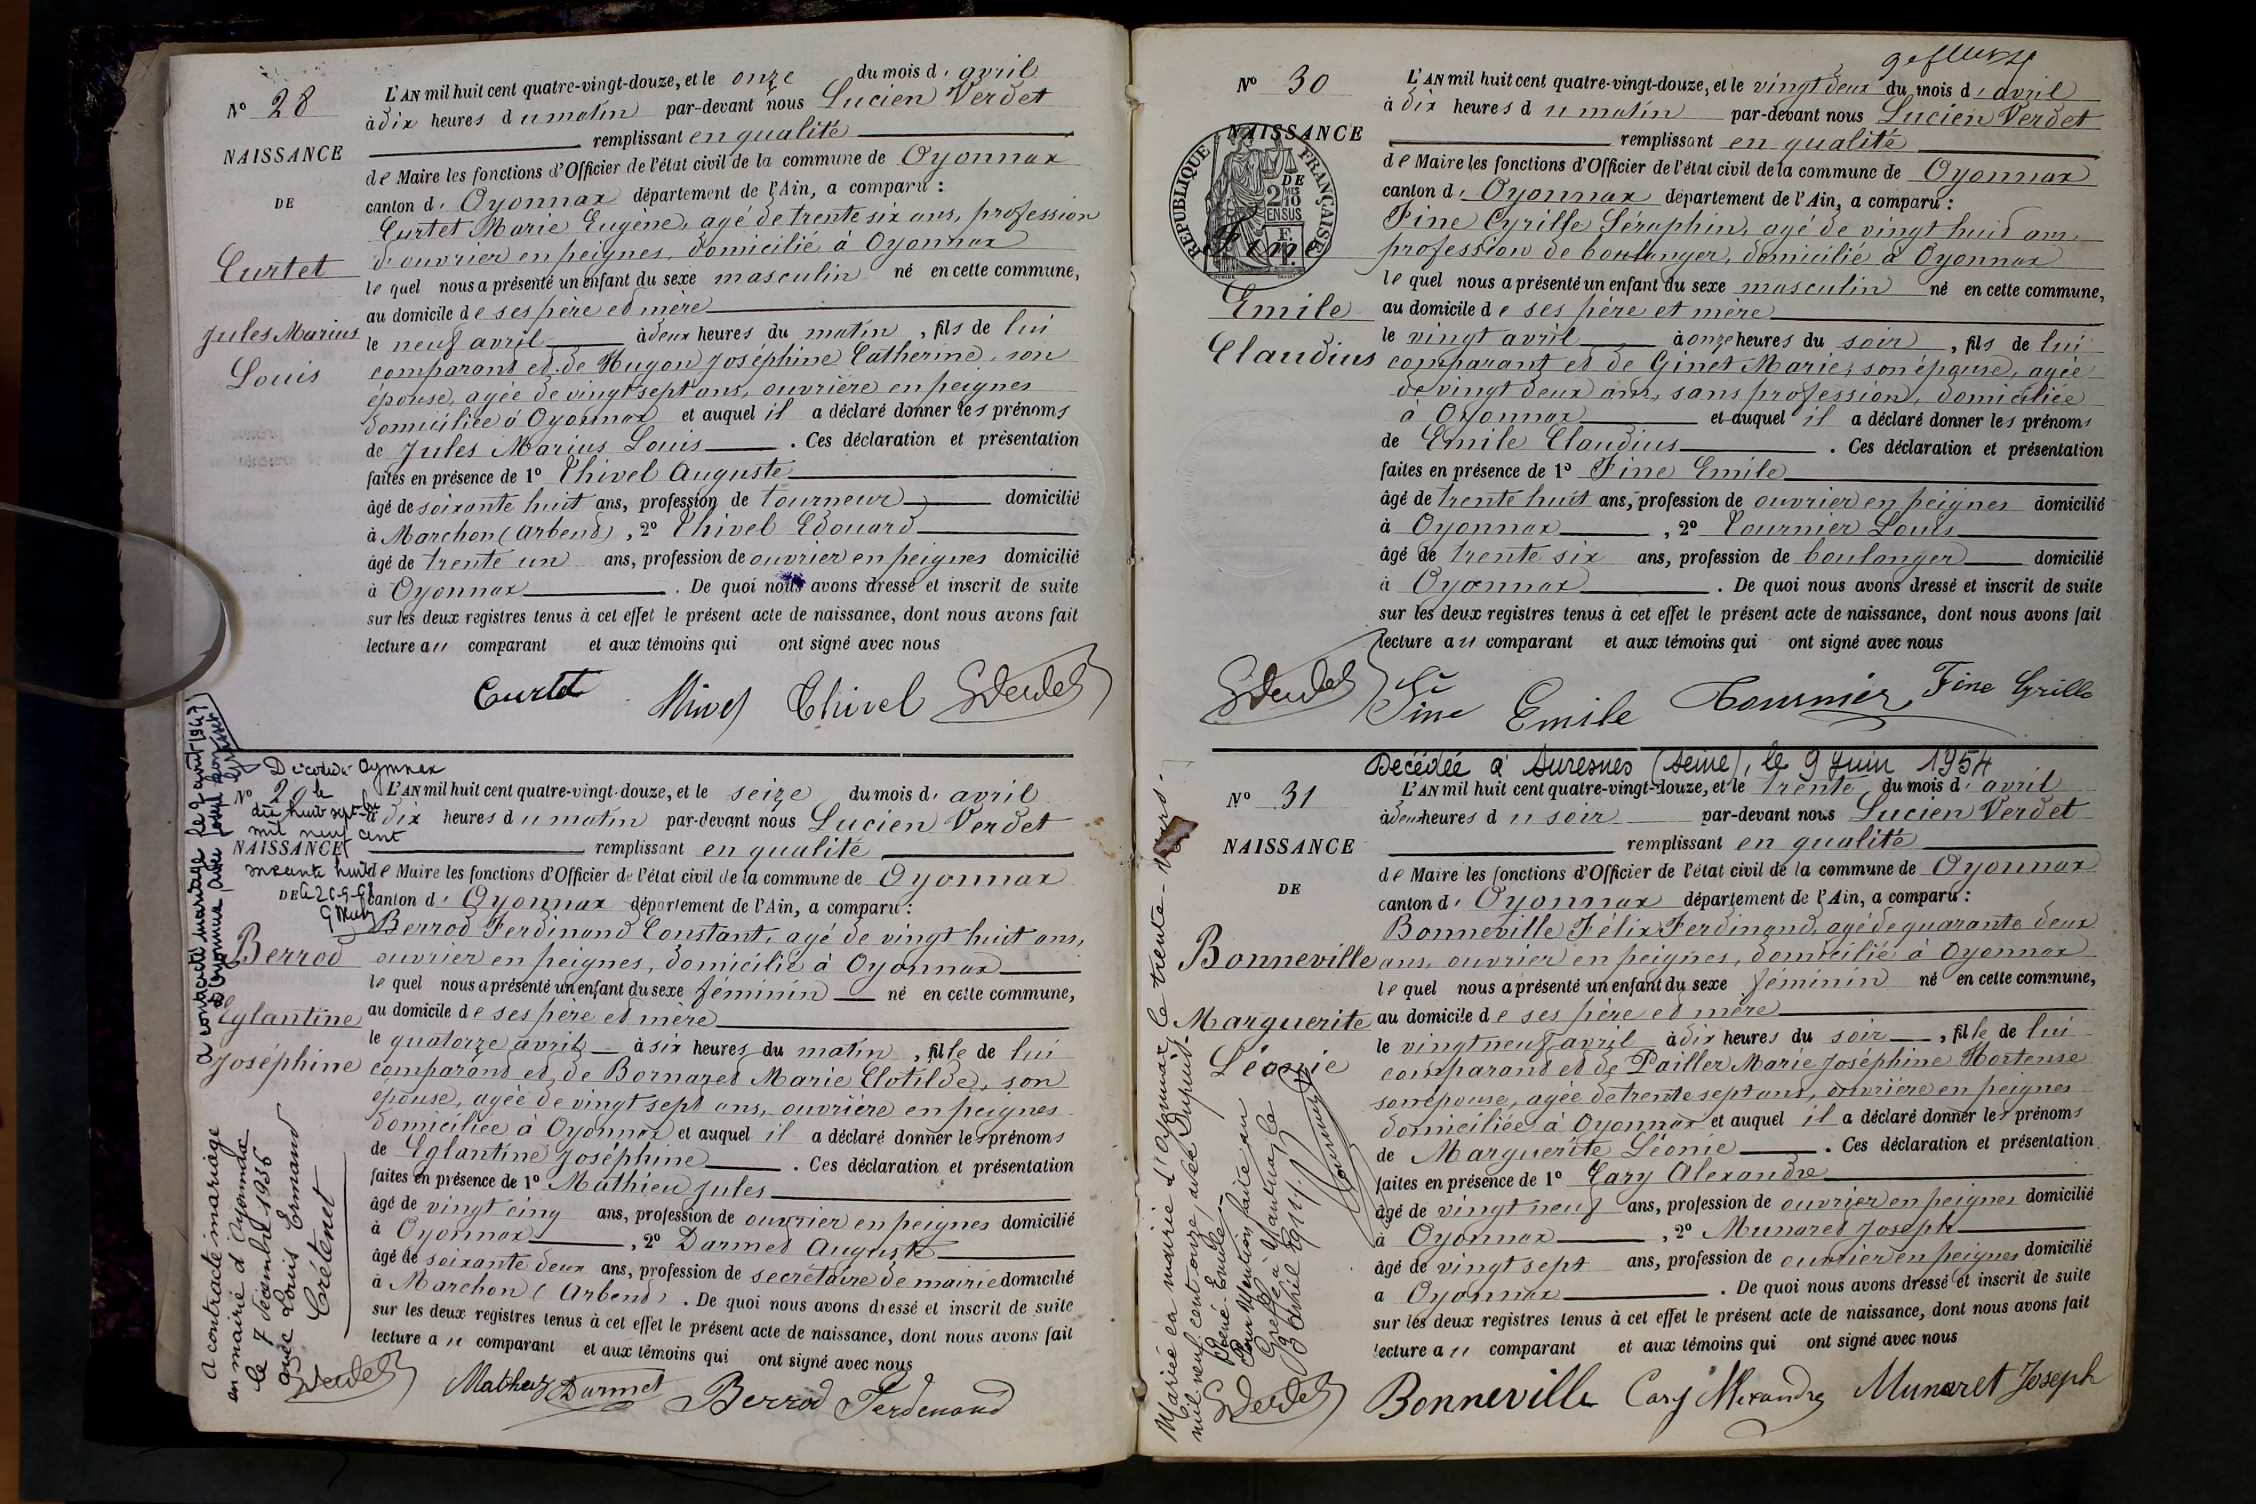 N° 28
NAISSANCE
DE
Curtet
Jules Marius
Louis
L'AN mil huit cent quatre-vingt-douze, et le onze du mois d' avril
à dix heures du matin par-devant nous Lucien Verdet
remplissant en qualité
de Maire les fonctions d'Officier de l'état civil de la commune de Oyonnax
canton d' Oyonnax département de l'Ain, a comparu :
Curtet Marie Eugène, agé de trente six ans, profession
d'ouvrier en peignes, domicilié à Oyonnax
le quel nous a présenté un enfant du sexe masculin né en cette commune,
au domicile de ses père et mère
le neuf avril à deux heures du matin, fils de lui
comparant et de Hugon Joséphine Catherine, son
épouse, agée de vingt sept ans, ouvrière en peignes
domiciliée à Oyonnax et auquel il a déclaré donner les prénoms
de Jules Marius Louis. Ces déclaration et présentation
faites en présence de 1° Thivel Auguste
âgé de soixante huit ans, profession de tourneur domicilié
à Marchon (Arbend), 2° Thivel Edouard
âgé de trente un ans, profession de ouvrier en peignes domicilié
à Oyonnax. De quoi nous avons dressé et inscrit de suite
sur les deux registres tenus à cet effet le présent acte de naissance, dont nous avons fait
lecture au comparant et aux témoins qui ont signé avec nous
Curtet Thivel Thivel LVerdet
Décédée Oyonnax
N° 29 le
dix huit sept
mil neuf cent
NAISSANCE
soixante huit
DE Le 20-9-68
Berrod
Eglantine
Joséphine
a contracté mariage le 9 août 1947
à Oyonnax avec
A contracté mariage
en mairie d'Oyonnax
le 7 décembre 1935
avec Louis Ermand
Crétenet
L'AN mil huit cent quatre-vingt-douze, et le seize du mois d' avril
à dix heures du matin par-devant nous Lucien Verdet
remplissant en qualité
de Maire les fonctions d'Officier de l'état civil de la commune de Oyonnax
canton d' Oyonnax département de l'Ain, a comparu :
Berrod Ferdinand Constant, agé de vingt huit ans,
ouvrier en peignes, domicilié à Oyonnax
le quel nous a présenté un enfant du sexe féminin né en cette commune,
au domicile de ses père et mère
le quatorze avril à six heures du matin, fille de lui
comparant et de Bornared Marie Clotilde, son
épouse, agée de vingt sept ans, ouvrière en peignes
domiciliée à Oyonnax et auquel il a déclaré donner les prénoms
de Eglantine Joséphine. Ces déclaration et présentation
faites en présence de 1° Mathieu Jules
âgé de vingt cinq ans, profession de ouvrier en peignes domicilié
à Oyonnax, 2° Darmed Auguste
âgé de soixante deux ans, profession de secrétaire de mairie domicilié
à Marchon (Arbend). De quoi nous avons dressé et inscrit de suite
sur les deux registres tenus à cet effet le présent acte de naissance, dont nous avons fait
lecture au comparant et aux témoins qui ont signé avec nous
LVerdet Mathieu Darmet Berrod Ferdinand
N° 30
NAISSANCE
DE
RÉPUBLIQUE FRANÇAISE
2/10
EN SUS
Fine
Emile
Claudius
L'AN mil huit cent quatre-vingt-douze, et le vingt deux du mois d' avril
à dix heures du matin par-devant nous Lucien Verdet
remplissant en qualité
de Maire les fonctions d'Officier de l'état civil de la commune de Oyonnax
canton d' Oyonnax département de l'Ain, a comparu :
Fine Cyrille Séraphin, agé de vingt huit ans,
profession de boulanger, domicilié à Oyonnax
le quel nous a présenté un enfant du sexe masculin né en cette commune,
au domicile de ses père et mère
le vingt avril à onze heures du soir, fils de lui
comparant et de Ginet Marie, son épouse, agée
de vingt deux ans, sans profession, domiciliée
à Oyonnax et auquel il a déclaré donner les prénoms
de Emile Claudius. Ces déclaration et présentation
faites en présence de 1° Fine Emile
âgé de trente huit ans, profession de ouvrier en peignes domicilié
à Oyonnax, 2° Tournier Louis
âgé de trente six ans, profession de boulanger domicilié
à Oyonnax. De quoi nous avons dressé et inscrit de suite
sur les deux registres tenus à cet effet le présent acte de naissance, dont nous avons fait
lecture au comparant et aux témoins qui ont signé avec nous
LVerdet Fine Emile Tournier Fine Cyrille
Décédée à Suresnes (Seine), le 9 Juin 1954
N° 31
NAISSANCE
DE
Bonneville
Marguerite
Léonie
Mariée en mairie d'Oyonnax le trente-
mil neuf cent onze, avec Dupuit-
René Emile.
Pour Mention faite au
Greffe à Nantua, la
3 Avril 1911.
L'AN mil huit cent quatre-vingt-douze, et le trente du mois d' avril
à deux heures du soir par-devant nous Lucien Verdet
remplissant en qualité
de Maire les fonctions d'Officier de l'état civil de la commune de Oyonnax
canton d' Oyonnax département de l'Ain, a comparu :
Bonneville Félix Ferdinand, agé de quarante deux
ans, ouvrier en peignes, domicilié à Oyonnax
le quel nous a présenté un enfant du sexe féminin né en cette commune,
au domicile de ses père et mère
le vingt neuf avril à dix heures du soir, fille de lui
comparant et de Pailler Marie Joséphine Hortense
son épouse, agée de trente sept ans, ouvrière en peignes
domiciliée à Oyonnax et auquel il a déclaré donner les prénoms
de Marguerite Léonie. Ces déclaration et présentation
faites en présence de 1° Cary Alexandre
âgé de vingt neuf ans, profession de ouvrier en peignes domicilié
à Oyonnax, 2° Munared Joseph
âgé de vingt sept ans, profession de ouvrier en peignes domicilié
à Oyonnax. De quoi nous avons dressé et inscrit de suite
sur les deux registres tenus à cet effet le présent acte de naissance, dont nous avons fait
lecture au comparant et aux témoins qui ont signé avec nous
LVerdet Bonneville Cary Alexandre Munaret Joseph